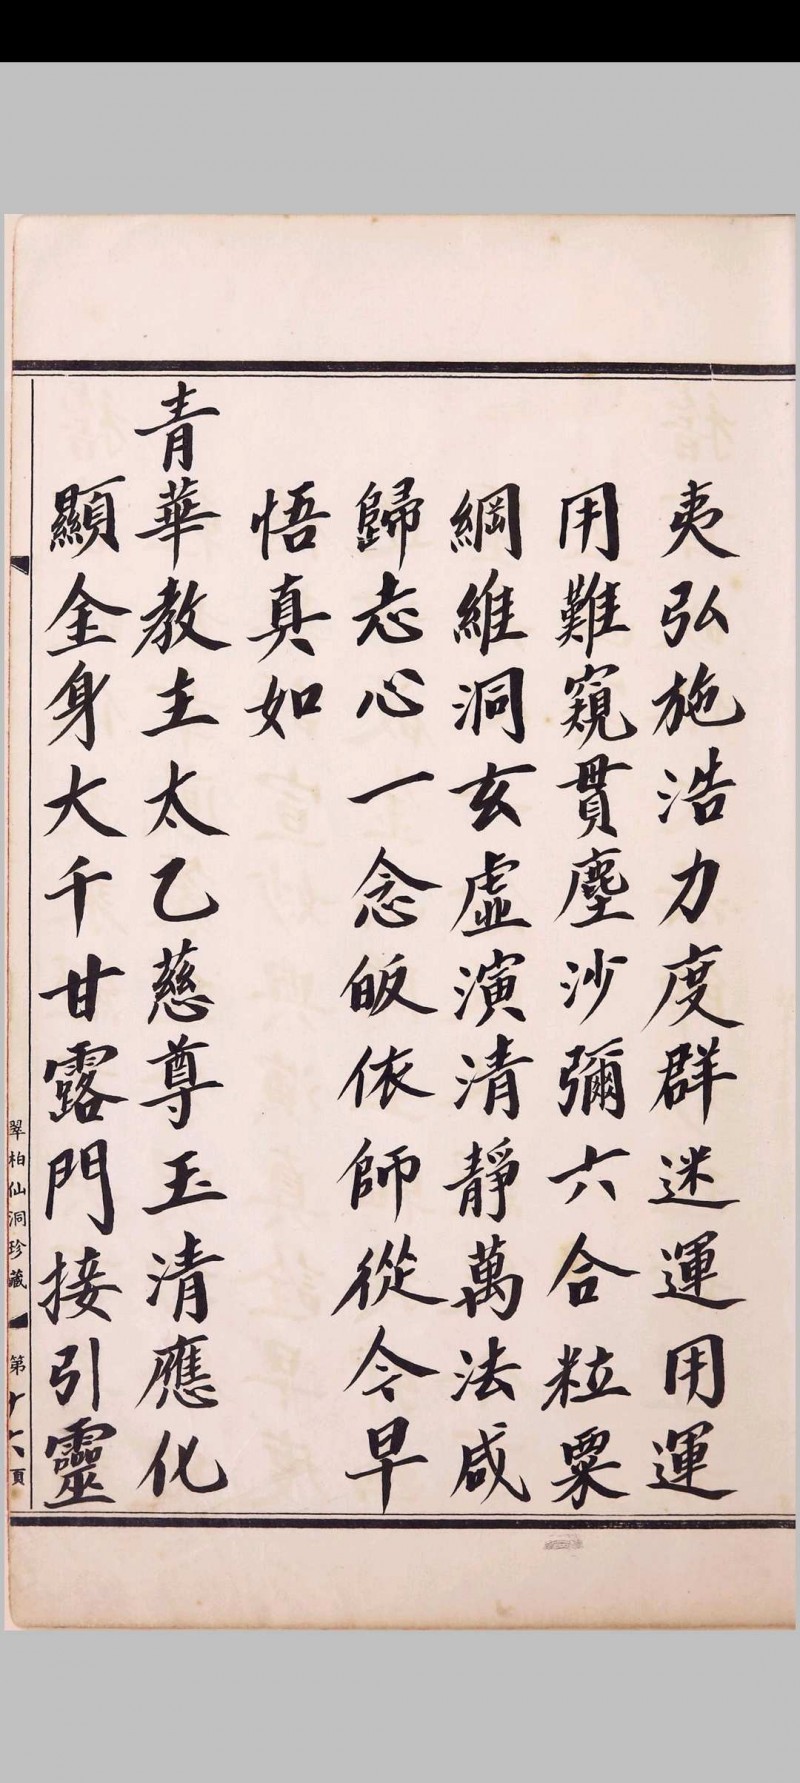 夷弘施浩力度群迷運用運
用難窺貫塵沙彌六合粒粟
綱維洞玄虛演清靜萬法咸
歸志心一念皈依師從今早
悟真如
青華教主太乙慈尊玉清應化
顯全身大千甘露門接引靈
翠柏仙洞珍藏
第十六頁